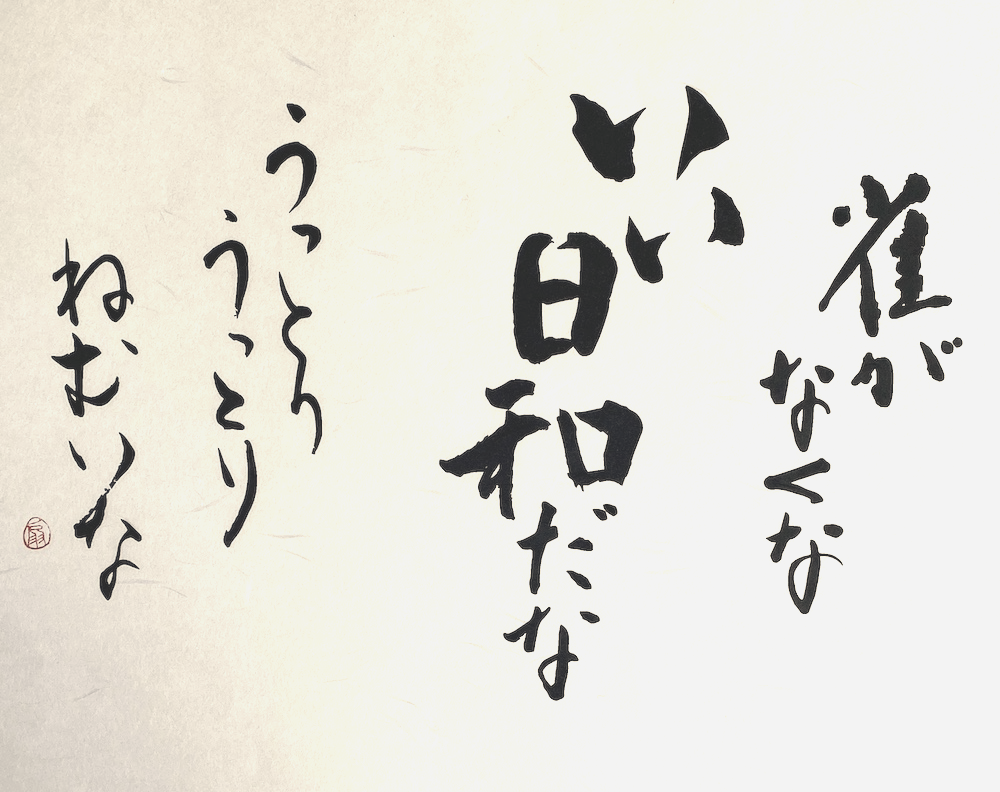 雀が
なくな
いい
日和だな
うっとり
うっとり
ねむいな